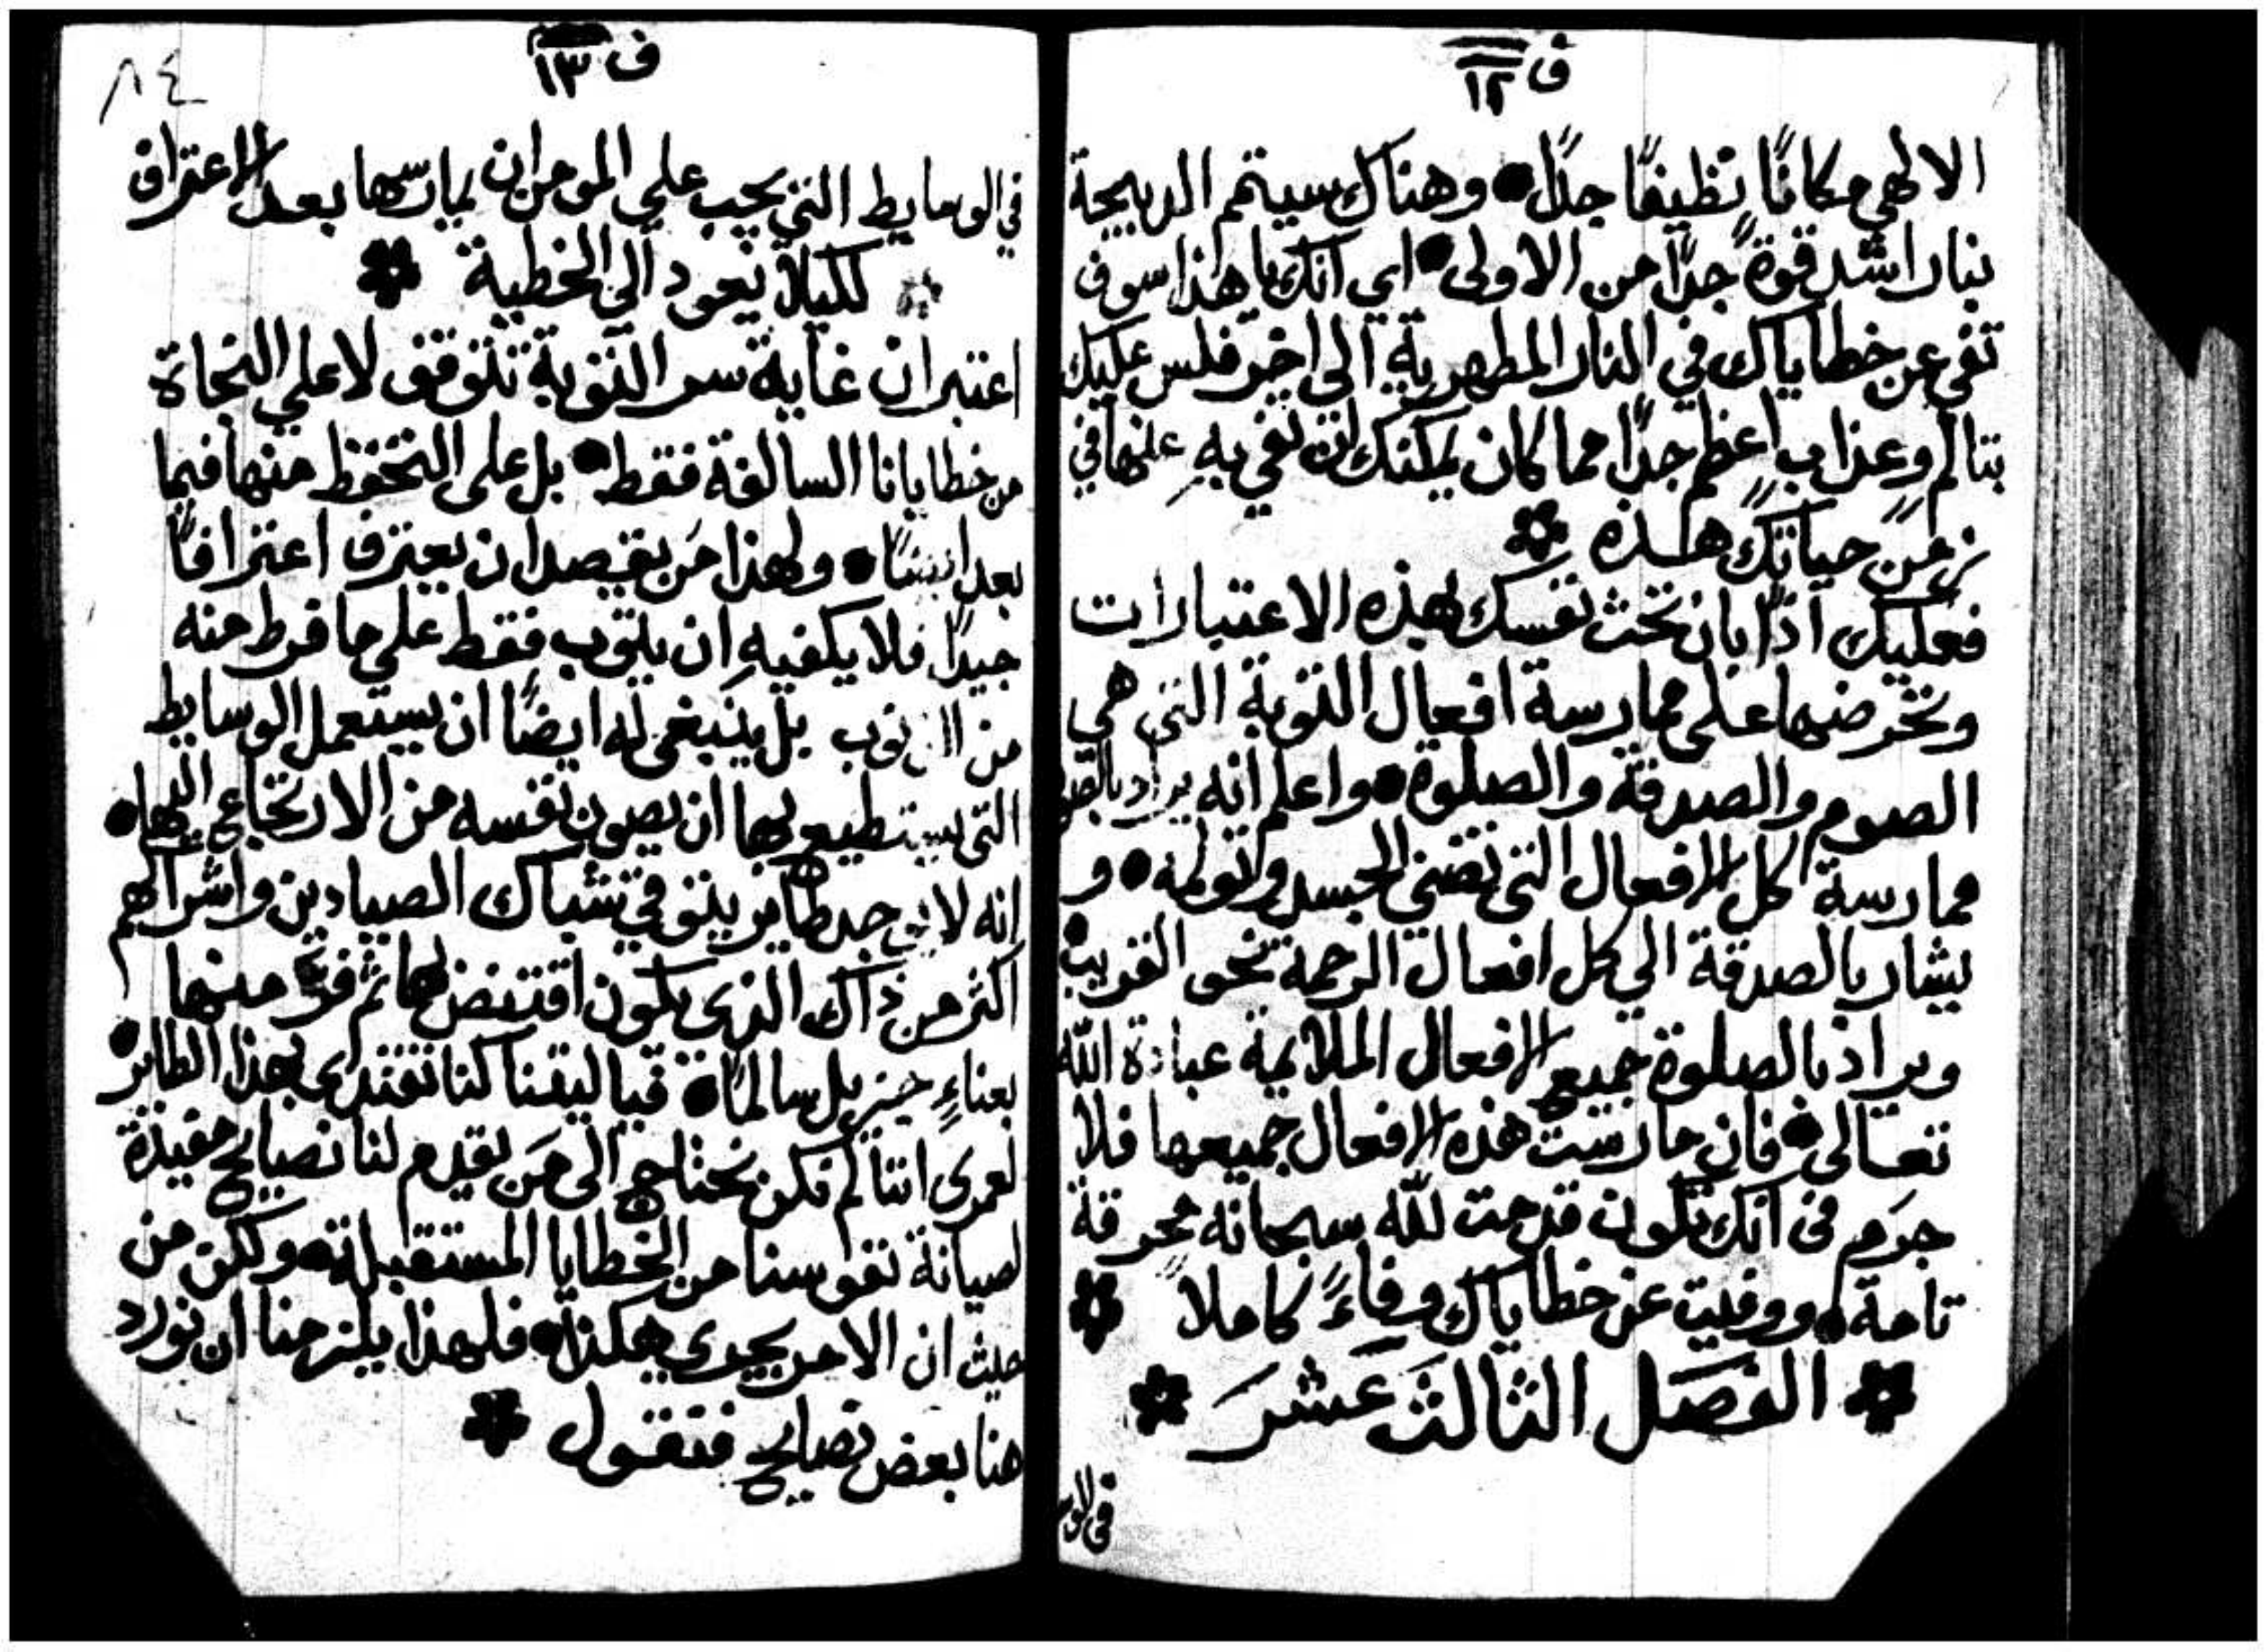 ف ١٢
الالهي مكانًا نظيفًا جدًا • وهناك سيتم الدبيحة
بنار اشد قوةً جدًا من الاولى • اي انك يا هذا سوف
تفي عن خطاياك في النار المطهرية الى اخر فلس عليك
بتالم وعذابٍ اعظم جدًا مما كان يمكنك ان تفي بهِ عنها في
زمن حياتك هذه
فعليك اذًا بان تحث نفسك بهذه الاعتبارات
وتحرضها على ممارسة افعال التوبة التي هي
الصوم والصدقة والصلوة • واعلم انه يراد بالصوم
ممارسة كل الافعال التي تضني الجسد وتولمه • و
يشار بالصدقة الي كل افعال الرحمة نحو القريب
ويراد بالصلوة جميع الافعال الملايمة عبادة الله
تعالى • فان مارست هذه الافعال جميعها فلا
جرم في انك تكون قدمت لله سبحانه محرقة
تامة • ووفيت عن خطاياك وفاءً كاملاً
الفصل الثالث عشر
في الوسا
ف ١٣
٨٤
في الوسايط التي يجب علي المومن ان يمارسها بعد الاعتراف
لكيلا يعود الى الخطية
اعتبر ان غاية سر التوبة تتوقف لا علي النجاة
من خطايانا السالفة فقط • بل على التحفظ منها فيما
بعد ايضًا • ولهذا مَن يقصد ان يعترف اعترافًا
جيدًا فلا يكفيهِ ان يتوب فقط علي ما فرط منه
من الذنوب بل ينبغي له ايضًا ان يستعمل الوسايط
التي يستطيع بها ان يصون نفسه من الارتجاع اليها •
انه لا يوجد طاير يتوقي شباك الصيادين واشراكهم
اكثر من ذاك الذي يكون اقتنض بها ثم فرّ منها
بعناءٍ جزيل سالمًا • فيا ليتنا كنا نقتدي بهذا الطاير
لعمري اننا لم نكن نحتاج الى مَن يقدم لنا نصايح مفيدة
لصيانة نفوسنا من الخطايا المستقبلة • ولكن من
حيث ان الامر يجري هكذا • فلهذا يلزمنا ان نورد
هنا بعض نصايح فنقول